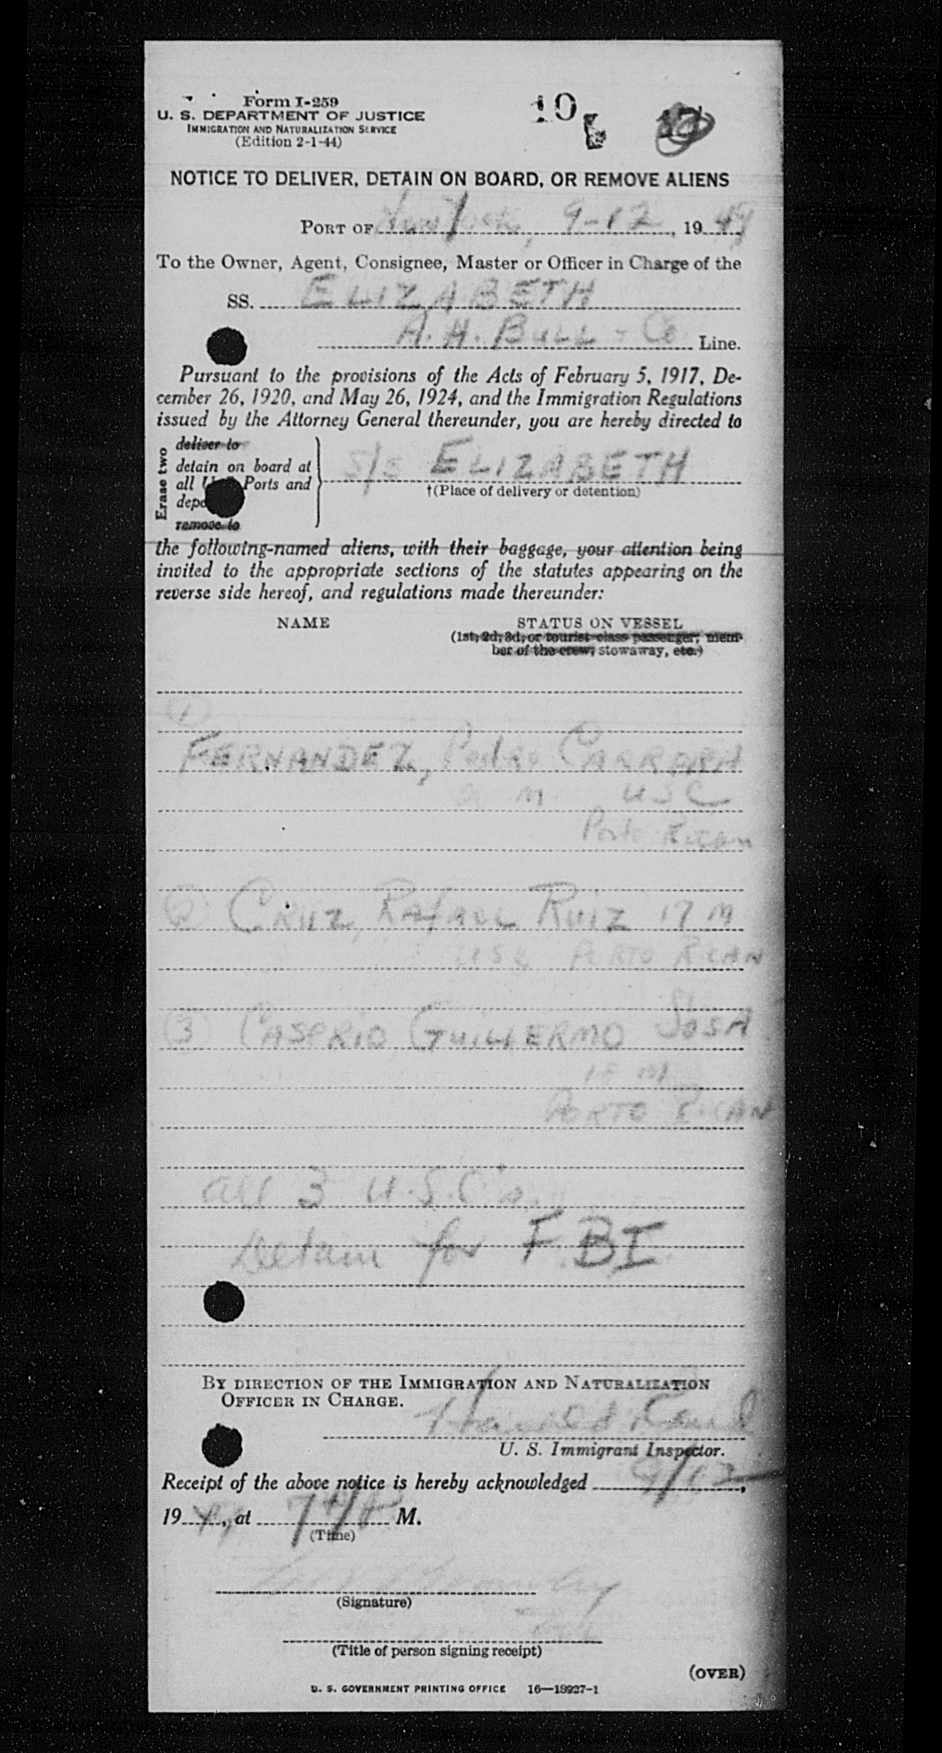 Form I-259
U. S. DEPARTMENT OF JUSTICE
IMMIGRATION AND NATURALIZATION SERVICE
(Edition 2-1-44)
10
NOTICE TO DELIVER, DETAIN ON BOARD, OR REMOVE ALIENS
PORT OF New York, 9-12, 1949
To the Owner, Agent, Consignee, Master or Officer in Charge of the
SS. ELIZABETH
A. H. BULL - Co Line.
Pursuant to the provisions of the Acts of February 5, 1917, De-
cember 26, 1920, and May 26, 1924, and the Immigration Regulations
issued by the Attorney General thereunder, you are hereby directed to
Erase two
deliver to
detain on board at
all U Ports and
depo
remove to
S/S ELIZABETH
†(Place of delivery or detention)
the following-named aliens, with their baggage, your attention being
invited to the appropriate sections of the statutes appearing on the
reverse side hereof, and regulations made thereunder:
NAME STATUS ON VESSEL
(1st, 2d, 3d, or tourist class passenger, mem-
ber of the crew, stowaway, etc.)
(1)
FERNANDEZ, Pedro CARRARA
M USC
Porto Rican
(2) CRUZ, RAFAEL RUIZ 17 M
USC PORTO RICAN
(3) CASPRIO GUILLERMO SOSA
M
PORTO RICAN
all 3 U.S.C's.
Detain for FBI
BY DIRECTION OF THE IMMIGRATION AND NATURALIZATION
OFFICER IN CHARGE.
U. S. Immigrant Inspector.
Receipt of the above notice is hereby acknowledged 9/12,
1949, at M.
(Time)
(Signature)
(Title of person signing receipt)
(OVER)
U. S. GOVERNMENT PRINTING OFFICE 16—18927-1